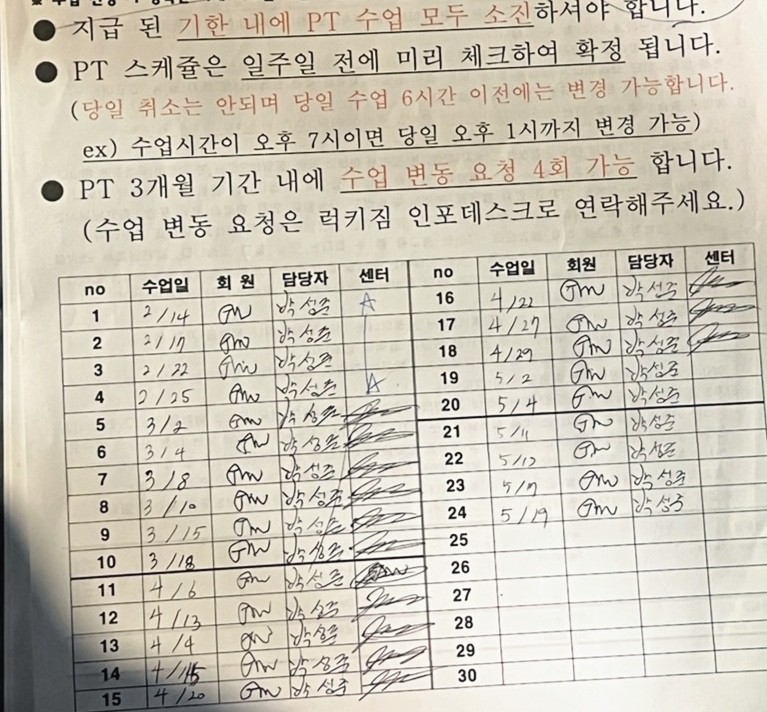 ● 지급 된 기한 내에 PT 수업 모두 소진하셔야 합니다.
● PT 스케쥴은 일주일 전에 미리 체크하여 확정 됩니다.
(당일 취소는 안되며 당일 수업 6시간 이전에는 변경 가능합니다.
ex) 수업시간이 오후 7시이면 당일 오후 1시까지 변경 가능)
● PT 3개월 기간 내에 수업 변동 요청 4회 가능 합니다.
(수업 변동 요청은 럭키짐 인포데스크로 연락해주세요.)
no 수업일 회 원 담당자 센터
1 2/14 박성준
2 2/17 박성준
3 2/22 박성준
4 2/25 박성준
5 3/2 박성준
6 3/4 박성준
7 3/8 박성준
8 3/10 박성준
9 3/15 박성준
10 3/18 박성준
11 4/6 박성준
12 4/13 박성준
13 4/4 박성준
14 박성준
15 4/20 박성준
no 수업일 회원 담당자 센터
16 4/22 박성준
17 4/27 박성준
18 4/29 박성준
19 5/2 박성준
20 5/4 박성준
21 5/11 박성준
22 박성준
23 박성준
24 5/19 박성준
25
26
27
28
29
30